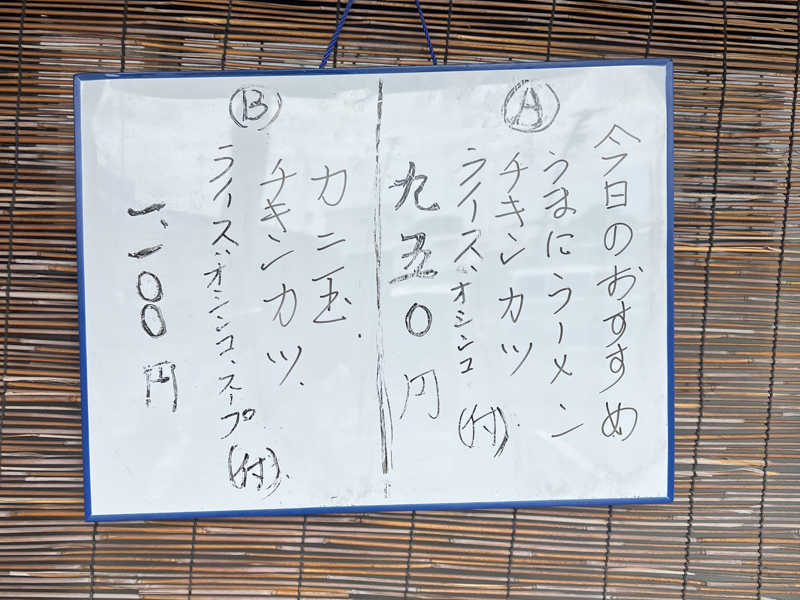 今日のおすすめ
Ⓐ
うまにラーメン
チキンカツ
ライス、オシンコ(付)
九五〇円
Ⓑ
カニ玉
チキンカツ
ライス、オシンコ、スープ(付)
一、一〇〇円